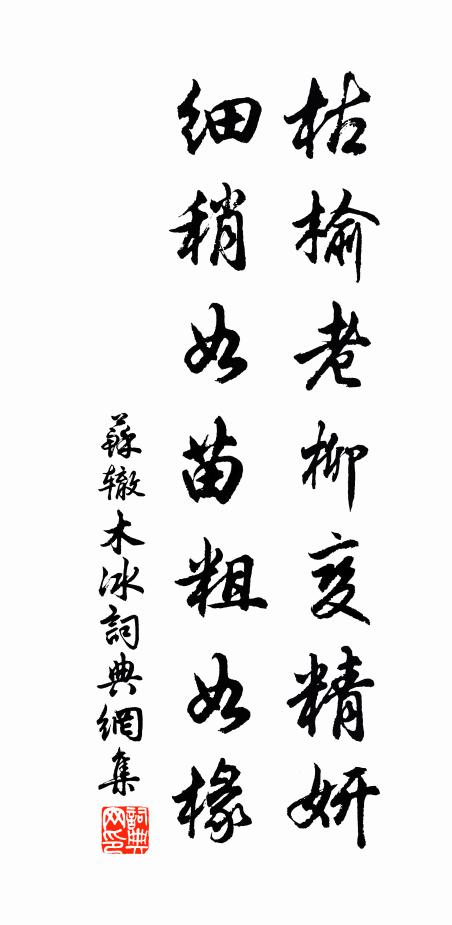 枯榆老柳变精妍
细稍如苗粗如椽
蘇辙木冰詞典網集
詞典网印